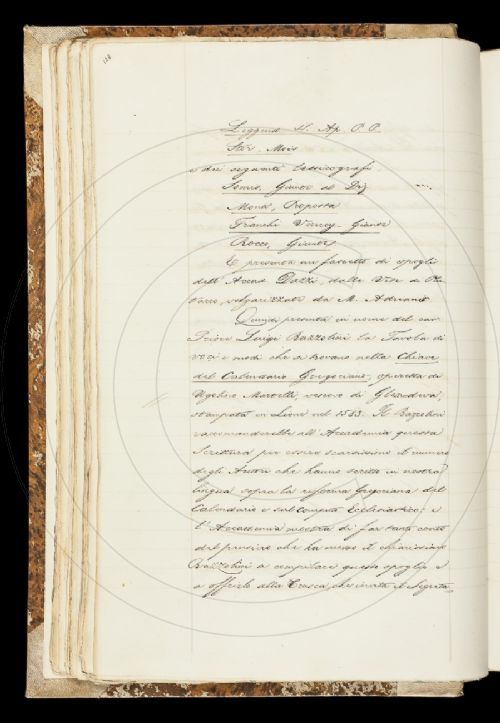 128
Leggono S. Ap. P. P.
Ster. Mois
e dei seguenti lessicografi
Somis, Giunte al Diz.
Mond, Proposta
Franchi Verney. Giunte
Rocco, Giunte
E presenta un fascetto di spogli
dell'Accad. Dazzi, dalle Vite di Plu
tarco, volgarizzate da M. Adriani
Quindi presenta in nome del cav.
Priore Luigi Bazzolini la Tavola di
voci e modi che si trovano nella Chiave
del Calendario Gregoriano, operetta di
Ugolino Martelli, vescovo di Glandeva,
stampata in Lione nel 1583. Il Bazzolini
raccomanderebbe all'Accademia questa
Scrittura per essere scarsissimo il numero
degli Autori che hanno scritto in nostra
lingua sopra la riforma Gregoriana del
Calendario e sul computo Ecclesiastico; e
l'Accademia mostra di far tanto conto
del pensiero che ha mosso il chiarissimo
Bazzolini a compilare questo spoglio e
a offrirlo alla Crusca, che invita il Segreta